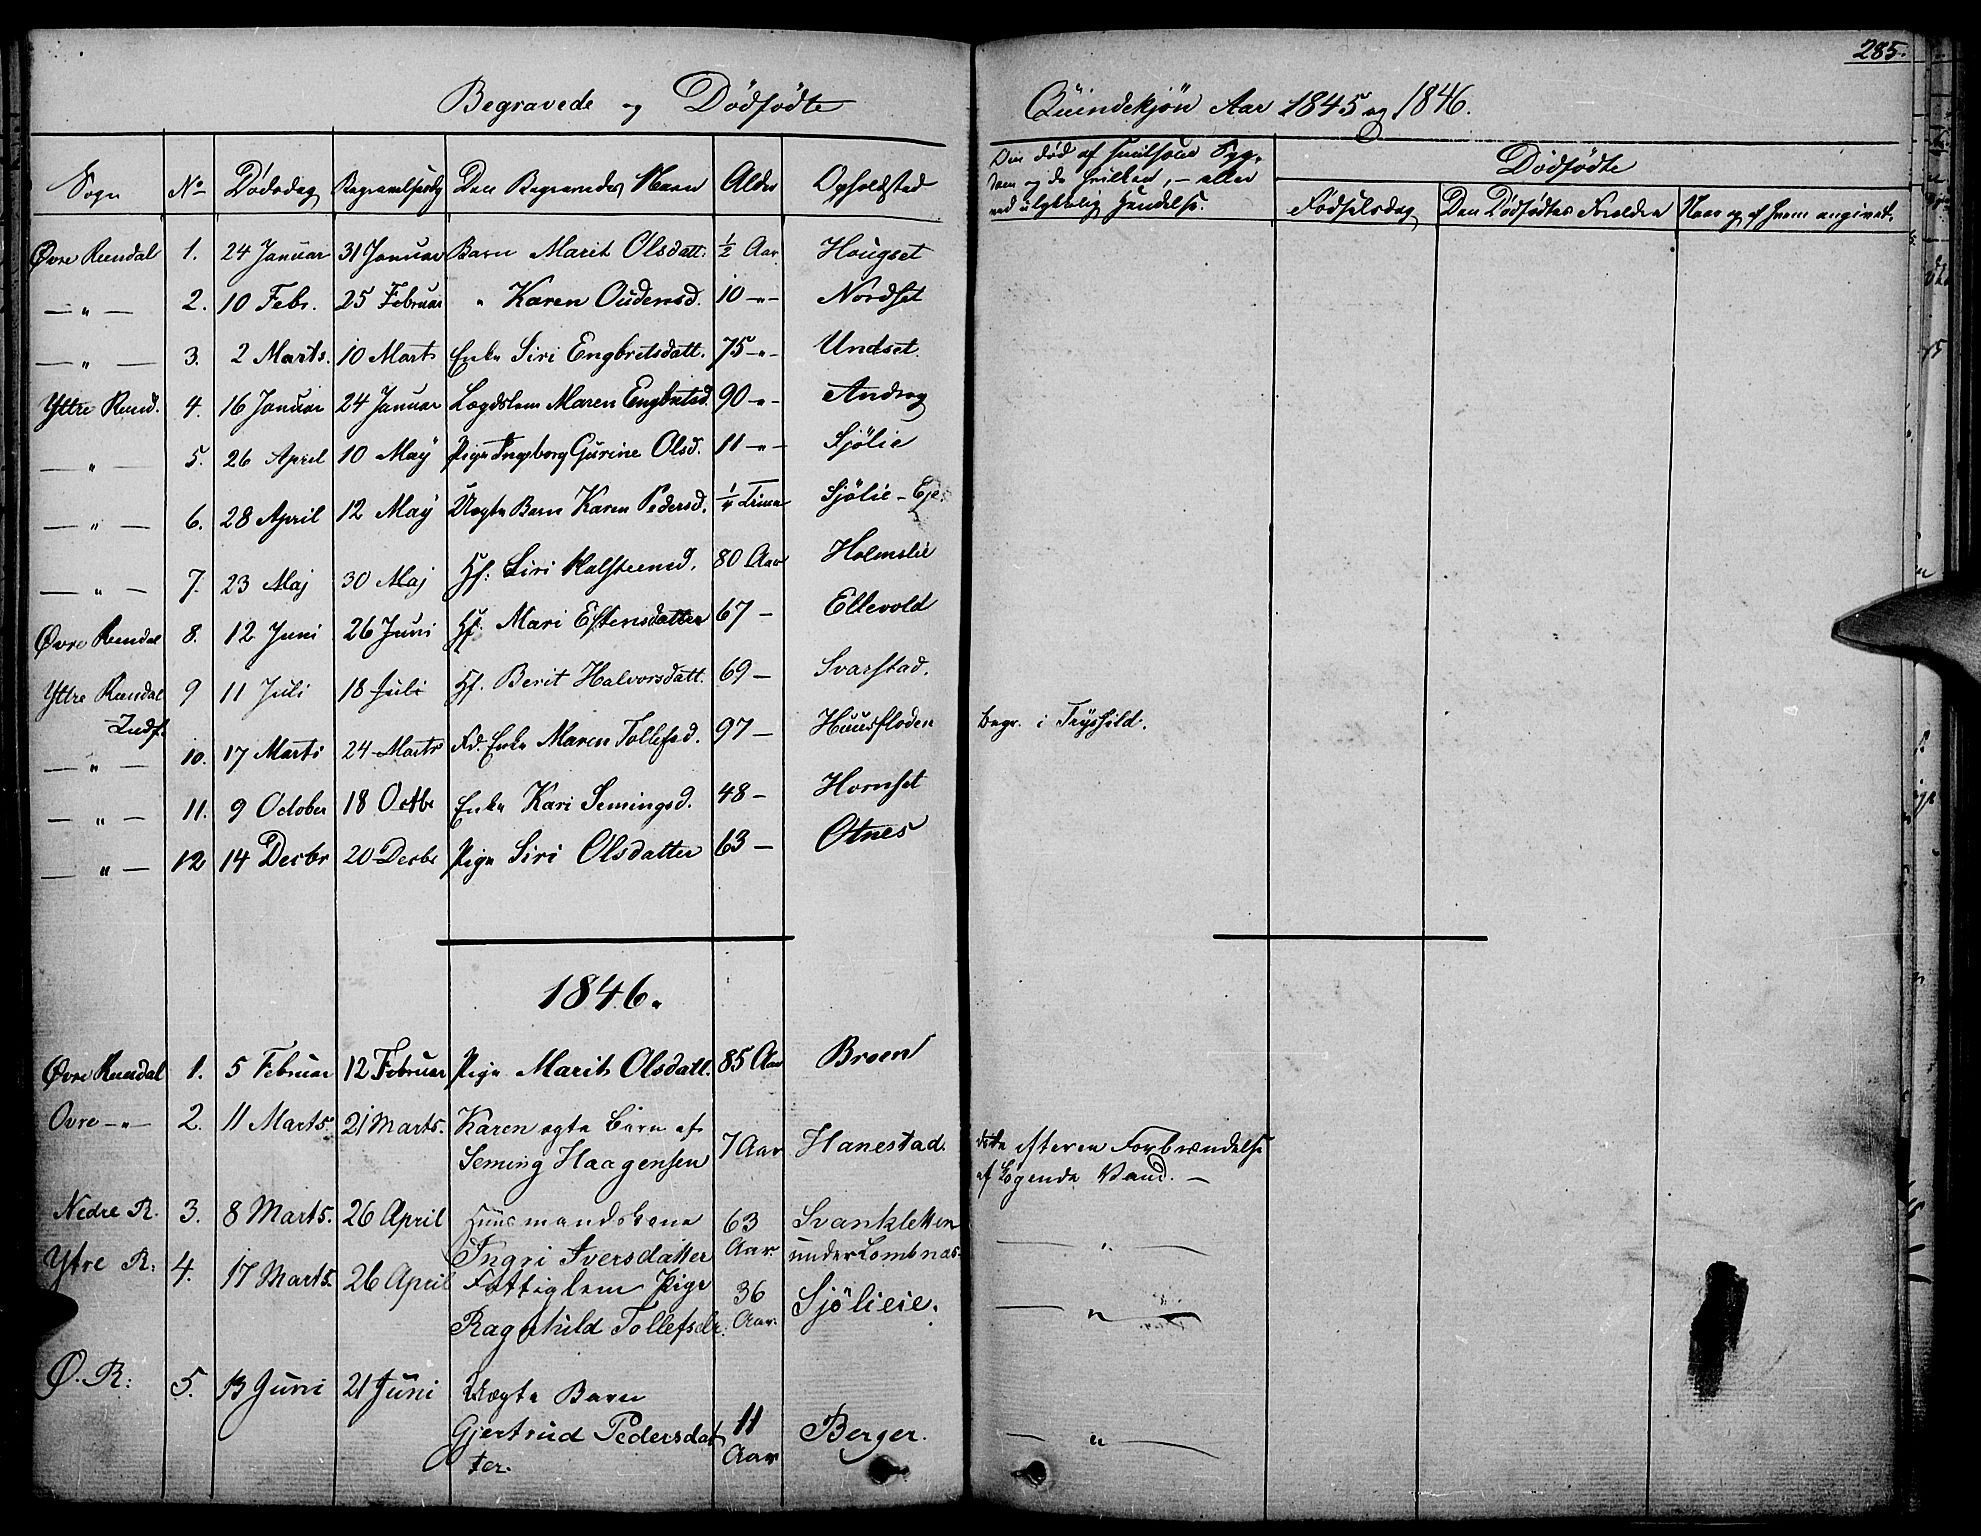 285.
Begravede og Dödfödte
Quindekjön Aar 1845 og 1846.
Sogn No Dödsdag Begravelsesdag Den Begravedes Navn Alder Opholdsted
Om död af Sygdom og da hvilken, – eller ved ulykkelig Hændelse.
Dödfödte
Födselsdag Den Dödfödtes Forældre Naar og af hvem angivet.
Øvre Rendal 1. 24 Januar 31 Januar Barn Marit Olsdatt. ½ Aar Hougset
— " — 2. 10 Febr. 25 Februar " Karen Oudensd. 10 -"- Nordset
— " — 3. 2 Marts. 10 Marts Enke Siri Engbretsdatt. 75 -"- Undset
Yttre Rend. 4. 16 Januar 24 Januar Lægdslem Maren Engbretsd. 90 -"- Andraa
— " — 5. 26 April 10 May Pige Ingeborg Gurine Olsd. 11 -"- Sjölie
— " — 6. 28 April 12 May Uægte Barn Karen Pedersd. ¼ Time Sjölie-Eje
— " — 7. 23 Maj 30 Maj Hf: Siri Halsteensd. 80 Aar Holmslie
Øvre Rendal 8. 12 Juni 26 Juni Hf. Mari Estensdatter 67 — Ellevold
Yttre Rendal 9 11 Juli 18 Juli Hf. Berit Halvorsdatt. 69 — Svarstad.
Indf.
— " — 10. 17 Marts 24 Marts Fd. Enke Maren Tollefsd. 97 — Huusfloden Begr. i Trysild.
— " — 11. 9 October 18 Octbr Enke Kari Semingsd. 48 — Hornset
— " — 12 14 Decbr 20 Decbr Pige Siri Olsdatter 63 — Otnes
1846.
Øvre Rendal 1. 5 Februar 12 Februar Pige Marit Olsdatt. 85 Aar Broen
Ovre -"- 2. 11 Marts. 21 Marts. Karen ægte Barn af
Seming Haagensen 7 Aar Hanestad. döde efter en Forbrændelse
af kogende Vand. —
Nedre R. 3. 8 Marts. 26 April Huusmandskone 63 Svankletten
Ingri Iversdatter Aar under Lombnæs — " —
Ytre R: 4. 17 Marts. 26 April Fattiglem Pige 36
Ragnhild Tollefsdr. Aar Sjölieie. — " —
Ø. R: 5. 13 Juni 21 Juni Uægte Barn
Gjertrud Pedersdat 11 Berger. — " —
ter. Aar